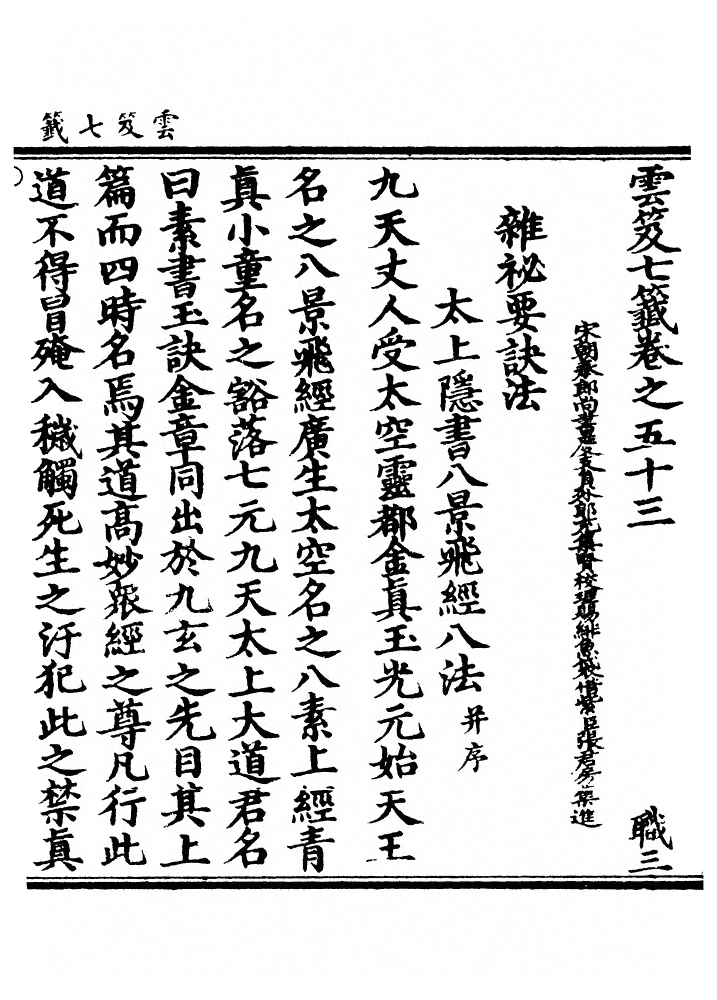 雲笈七籤
雲笈七籤卷之五十三
職三
宋朝奉郎尚書度支員外郎充集賢校理賜緋魚袋借紫臣張君房集進
雜祕要訣法
太上隱書八景飛經八法并序
九天丈人受太空靈都金真玉光元始天王
名之八景飛經廣生太空名之八素上經青
真小童名之豁落七元九天太上大道君名
曰素書玉訣金章同出於九玄之先目其上
篇而四時名焉其道高妙衆經之尊凡行此
道不得冒殗入穢觸死生之汙犯此之禁真